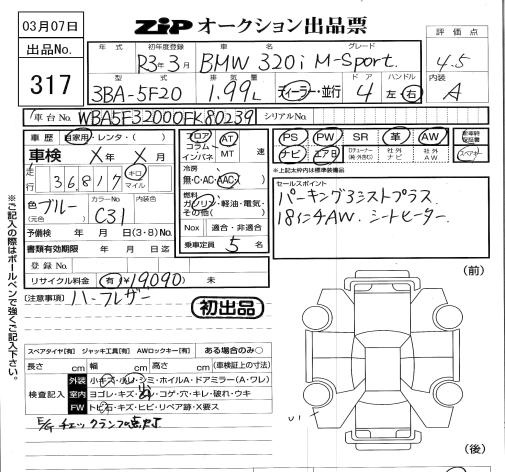 03月07日
ZIP オークション出品票
出品No.
317
年式 初年度登録 車名 グレード 評価点
R3年3月 BMW 320i M-Sport. 4.5
型式 排気量 ドア ハンドル 内装
3BA-5F20 1.99L ディーラー・並行 4 左・右 A
車台No. WBA5F32000FK80239 シリアルNo.
車歴 自家用・レンタ・( )
車検 X年 X月
走行 36817 キロ マイル
色(元色) ブルー カラーNo. C31 内装色
予備検 年 月 日(3・8)No.
書類有効期限 年 月 日迄
登録No.
リサイクル料金 有(¥19090) 未
フロア コラム インパネ AT MT 速
冷房 無・C・AC・AAC
燃料 ガソリン・軽油・電気・その他( )
Nox 適合・非適合
乗車定員 5 名
PS PW SR 革 AW 新車時保証書
ナビ エアB 社外ナビ 社外AW スペアキー
*上記太枠内は標準装備
セールスポイント
パーキングアシストプラス
18インチAW. シートヒーター.
(注意事項) ハーフレザー
初出品
※ご記入の際はボールペンで強くご記入下さい。
スペアタイヤ[有] ジャッキ工具[有] AWロックキー[有] ある場合のみ○
長さ cm 幅 cm 高さ cm (車検証上の寸法)
検査記入
外装 小キズ・小凹・シミ・ホイルA・ドアミラー(A・ワレ)
室内 ヨゴレ・キズ・スレ・コゲ・穴・キレ・破れ・ウキ
FW トビ石・キズ・ヒビ・リペア跡・X要ス
E/Gチェックランプ点灯
(前)
(後)